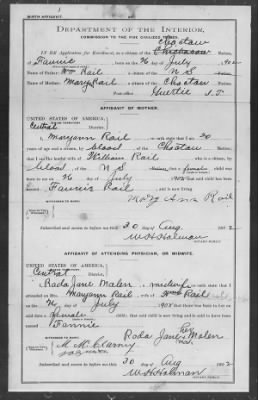 BIRTH AFFIDAVIT.
DEPARTMENT OF THE INTERIOR,
COMMISSION TO THE FIVE CIVILIZED TRIBES.
Choctaw
In Re Application for Enrollment, as a citizen of the Chickasaw Nation, of
Fannie born on the July 1902
Name of Father: Wm Rail a citizen of the N S Nation.
Name of Mother: Mary Rail a citizen of the Choctaw Nation.
Post-office I T
AFFIDAVIT OF MOTHER.
UNITED STATES OF AMERICA,
Central District.
I, Maryann Rail, on oath state that I am 30
years of age and a citizen, by blood, of the Choctaw Nation;
that I am the lawful wife of William Rail, who is a citizen, by
blood, of the N S Nation; that a female child was
born to me on July 1902; that said child has been
named Rail, and is now living.
Mary Ann Rail
WITNESSES TO MARK:
Subscribed and sworn to before me this 30 day of Aug 1902
NOTARY PUBLIC.
AFFIDAVIT OF ATTENDING PHYSICIAN, OR MIDWIFE.
UNITED STATES OF AMERICA,
Central District.
I, Rada Jane Malen, a midwife, on oath state that I
attended on Mrs. Maryann Rail, wife of Rail
on the day of July 1902; that there was born to her on said date a
female child; that said child is now living and is said to have been named
Fannie
her
Rada Jane x Malen
mark
WITNESSES TO MARK:
Subscribed and sworn to before me this 30 day of Aug 1902
NOTARY PUBLIC.